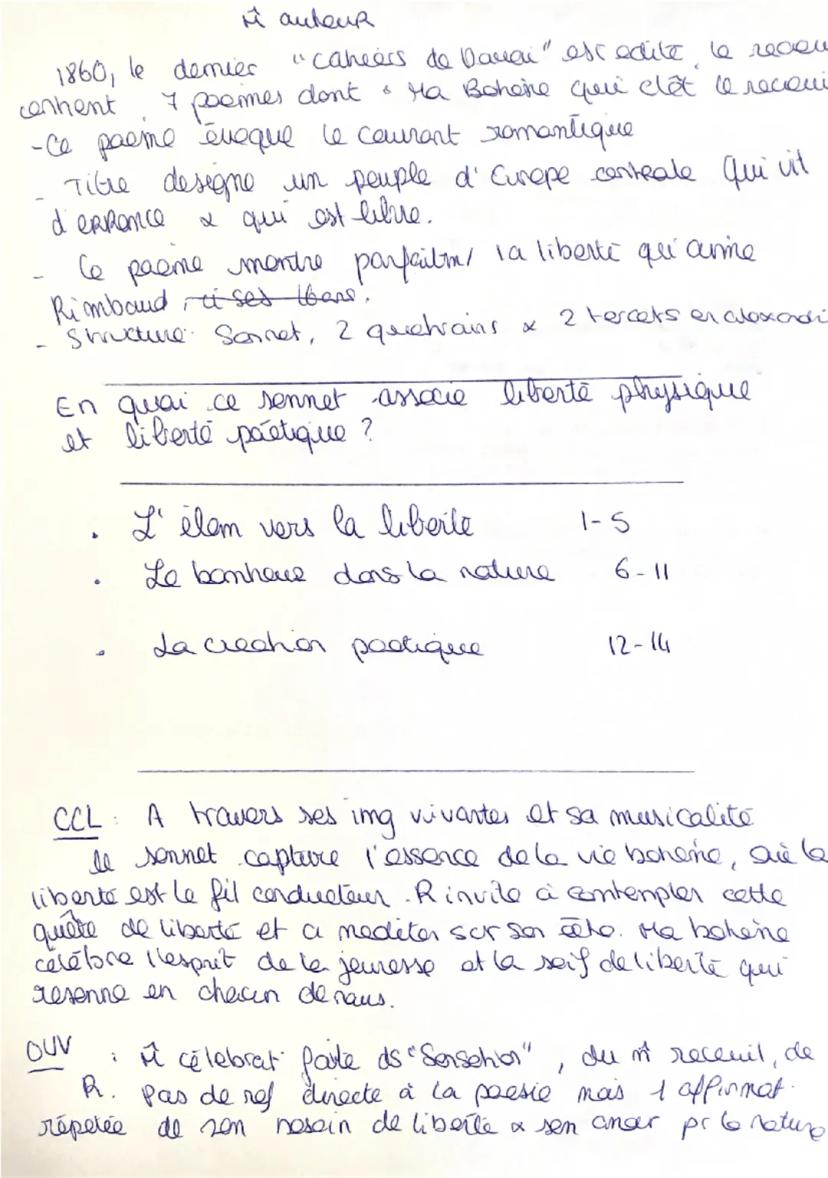 m̂ auteur
1860, le dernier "cahiers de Douai" est édité, le recueu
contient 7 poèmes dont " Ma Bohème qui clôt le recuei
-Ce poème évoque le courant romantique
- Titre désigne un peuple d'Europe centrale qui vit
d'errance & qui est libre.
- Ce poème montre parfaitm/ la liberté qu'anime
Rimbaud, et ses
- Structure: Sonnet, 2 quatrains & 2 tercets en alexandri
En quoi ce sonnet associe liberté physique
et liberté poétique ?
• L'élan vers la liberté 1-5
• Le bonheur dans la nature 6-11
• La création poétique 12-14
CCL : A travers ses img vivantes et sa musicalité
le sonnet capture l'essence de la vie bohème, où la
liberté est le fil conducteur. R invite à contempler cette
quête de liberté et à méditer sur son écho. Ma bohème
célèbre l'esprit de la jeunesse et la soif de liberté qui
résonne en chacun de nous.
OUV : m̂ célébrat° faite ds "Sensation", du m̂ receuil, de
R. pas de ref directe à la poésie mais 1 affirmat°
répétée de son besoin de liberté & son amour pr la nature